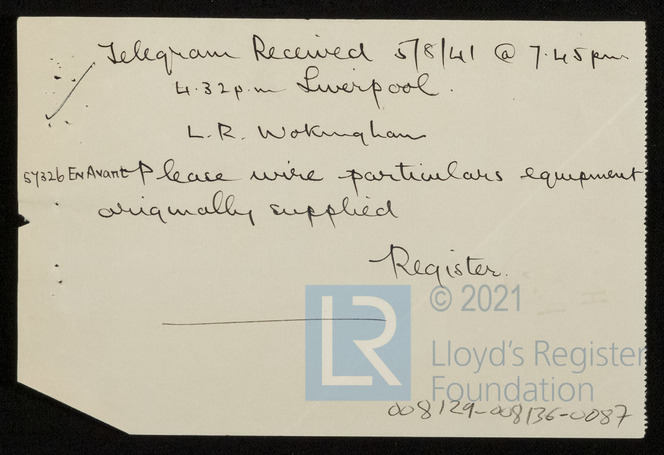 Telegram Received 5/8/41 @ 7.45pm
4.32pm Liverpool.
L.R. Wokingham
57326 En Avant Please wire particulars equipment
originally supplied
Register.
LR
© 2021
Lloyd's Register
Foundation
008129-008136-0087